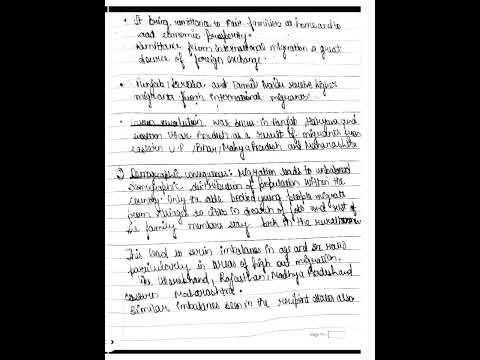 • It bring remittance to their families at home and to
add economic prosperity.
Remittance from international migration a great
source of foreign exchange.
• Punjab, Kerala and Tamil Nadu receive higher
migrants from international migrants.
• Green revolution was seen in Punjab, Haryana and
western Uttar Pradesh as a result of migrants from
eastern U.P, Bihar, Madhya Pradesh and Maharashtra
2) Demographic consequences: Migration leads to unbalanced
Demographic distribution of population within the
country. Only the able bodied young people migrate
from villages to cities in search of jobs and rest of
the family members stay back in the rural
This lead to serious imbalances in age and sex ratio
particularly in areas of high out migration,
in Uttarakhand, Rajasthan, Madhya Pradesh and
eastern Maharashtra.
Similar imbalances seen in the recipient states also
Page No.